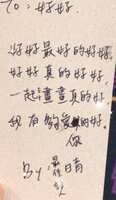 To:好好.
好好最好的好好
好好真的好好.
一起畫畫真的好
我有夠愛的好.
你
By 最
晴